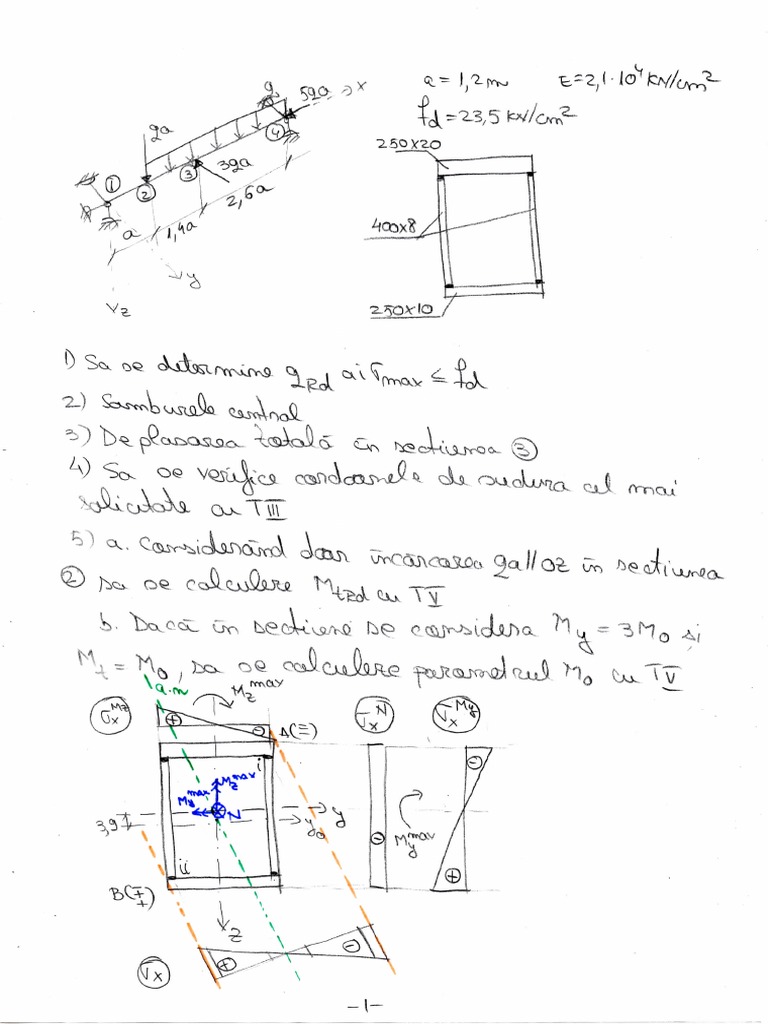 a = 1,2m E=2,1·10⁴ KN/cm²
fd = 23,5 KN/cm²
5qa x
q
qa
3qa
① ② ③ ④
a 1,4a 2,6a
y
z
250x20
400x8
250x10
1) Sa se determine qRd aî σmax ≤ fd
2) Samburele central
3) Deplasarea totală în sectiunea ③
4) Sa se verifice cordoanele de sudura cel mai
solicitate cu TIII
5) a. Considerând doar încărcarea qa//oz în sectiunea
② sa se calculeze MtRd cu TV
b. Dacă în sectiune se considera My = 3M0 și
Mt = M0, sa se calculeze parametrul M0 cu TV
a.n Mz max
σx Mz σx N σx My
+ - A(=)
i
Mz max
My max N
y
y0
3,9
ii
B(++)
z
My max
- - +
σx + -
-1-